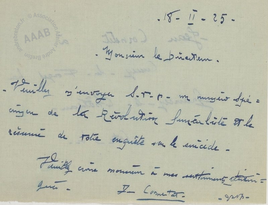 18-II-25
AAAB
Monsieur le Directeur.
Veuillez m'envoyer s.v.p. un numéro spé-
cimen de la Révolution Surréaliste et le
résumé de votre enquête sur le suicide.
Veuillez croire monsieur à mes sentiments